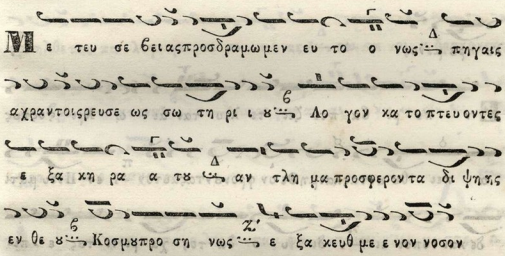 Με τευ σε βειας προσδραμωμεν ευ το ο νως Δ πηγαις
αχραντοις ρευσε ως σω τη ρι ι ου β Λο γον κα το πτευοντες
ε ξα κη ρα α του Δ αν τλη μα προσφερον τα δι ψη ης
εν θε ου β Κοσμου προ ση νως Ζ' ε ξα κευθ με ε νον νοσον